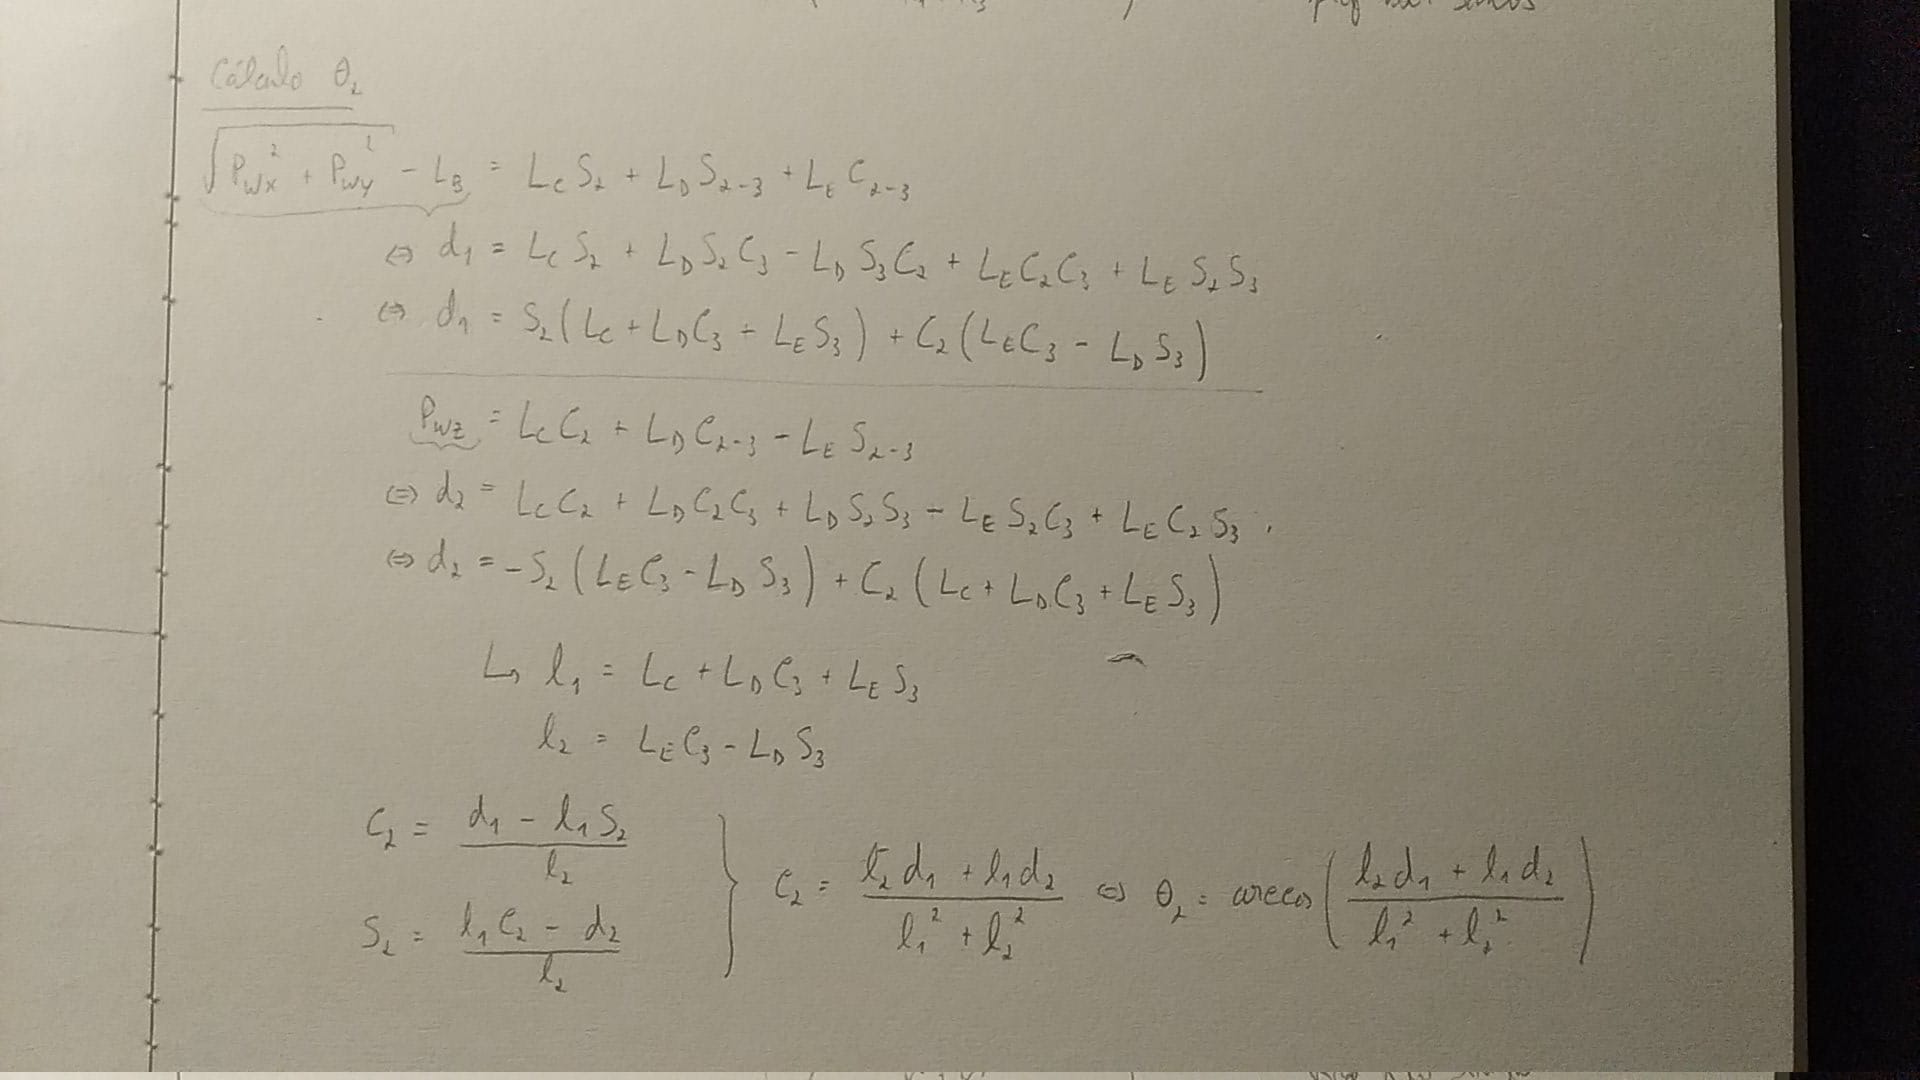 Cálculo θ₂
√(P_wx² + P_wy²) - L_B = L_C S₂ + L_D S₂₋₃ + L_E C₂₋₃
⇔ d₁ = L_C S₂ + L_D S₂ C₃ - L_D S₃ C₂ + L_E C₂ C₃ + L_E S₂ S₃
⇔ d₁ = S₂ (L_C + L_D C₃ + L_E S₃) + C₂ (L_E C₃ - L_D S₃)
P_wz = L_C C₂ + L_D C₂₋₃ - L_E S₂₋₃
⇔ d₂ = L_C C₂ + L_D C₂ C₃ + L_D S₂ S₃ - L_E S₂ C₃ + L_E C₂ S₃
⇔ d₂ = -S₂ (L_E C₃ - L_D S₃) + C₂ (L_C + L_D C₃ + L_E S₃)
↳ l₁ = L_C + L_D C₃ + L_E S₃
l₂ = L_E C₃ - L_D S₃
C₂ = (d₁ - l₁ S₂) / l₂
S₂ = (l₁ C₂ - d₂) / l₂
} C₂ = (l₂ d₁ + l₁ d₂) / (l₁² + l₂²) ⇔ θ₂ = arccos((l₂ d₁ + l₁ d₂) / (l₁² + l₂²))